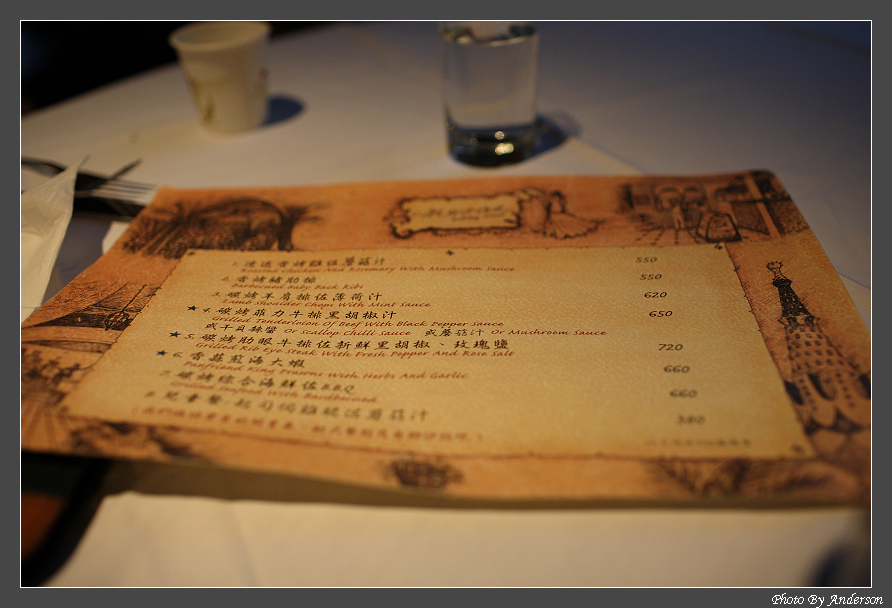 1. 迷迭香烤雞佐蘑菇汁 550
Roasted Chicken And Rosemary With Mushroom Sauce
2. 香烤豬肋排 550
Barbecued Baby Back Ribs
3. 碳烤羊肩排佐薄荷汁 620
Lamb Shoulder Chops With Mint Sauce
★ 4. 碳烤菲力牛排黑胡椒汁 650
Grilled Tenderloion Of Beef With Black Pepper Sauce
或干貝辣醬 Or Scallop Chilli Sauce 或蘑菇汁 Or Mushroom Sauce
★ 5. 碳烤肋眼牛排佐新鮮黑胡椒、玫瑰鹽 720
Grilled Rib Eye Steak With Fresh Pepper And Rose Salt
★ 6. 香蒜煎海大蝦 660
Panfriend King Prawns With Herbs And Garlic
7. 碳烤綜合海鮮佐BBQ 660
Grilled Seafood With
8. 兒童餐 380
Photo By Anderson